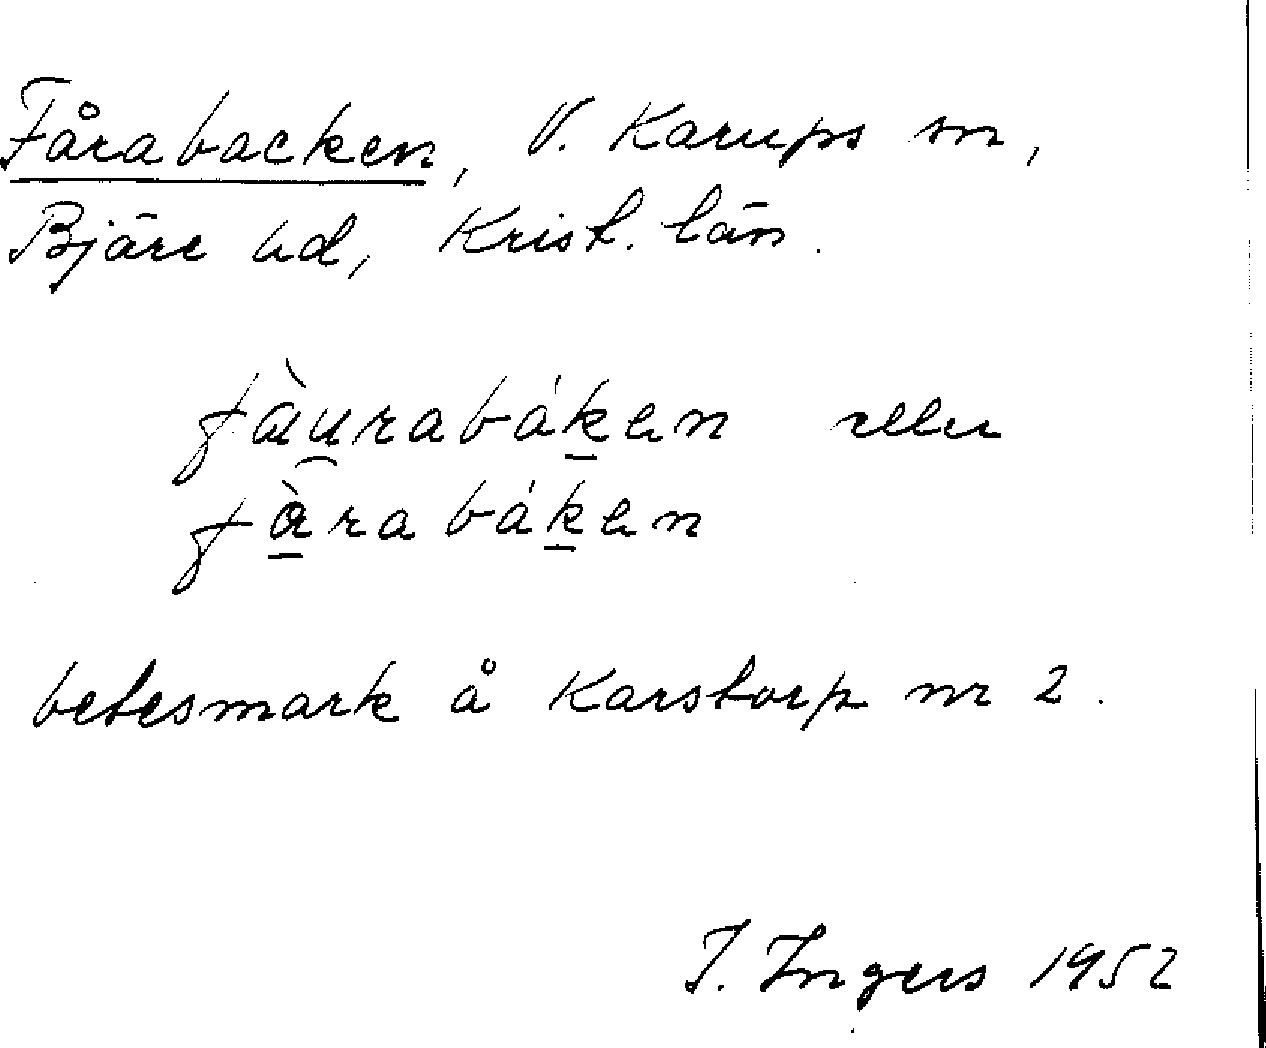 Fårabacken, V. Karups sn,
Bjäre hd, Krist. län.
fàu̯rabák̲en eller
fà̲rabák̲en
betesmark å Karstorp nr 2.
I. Ingers 1952